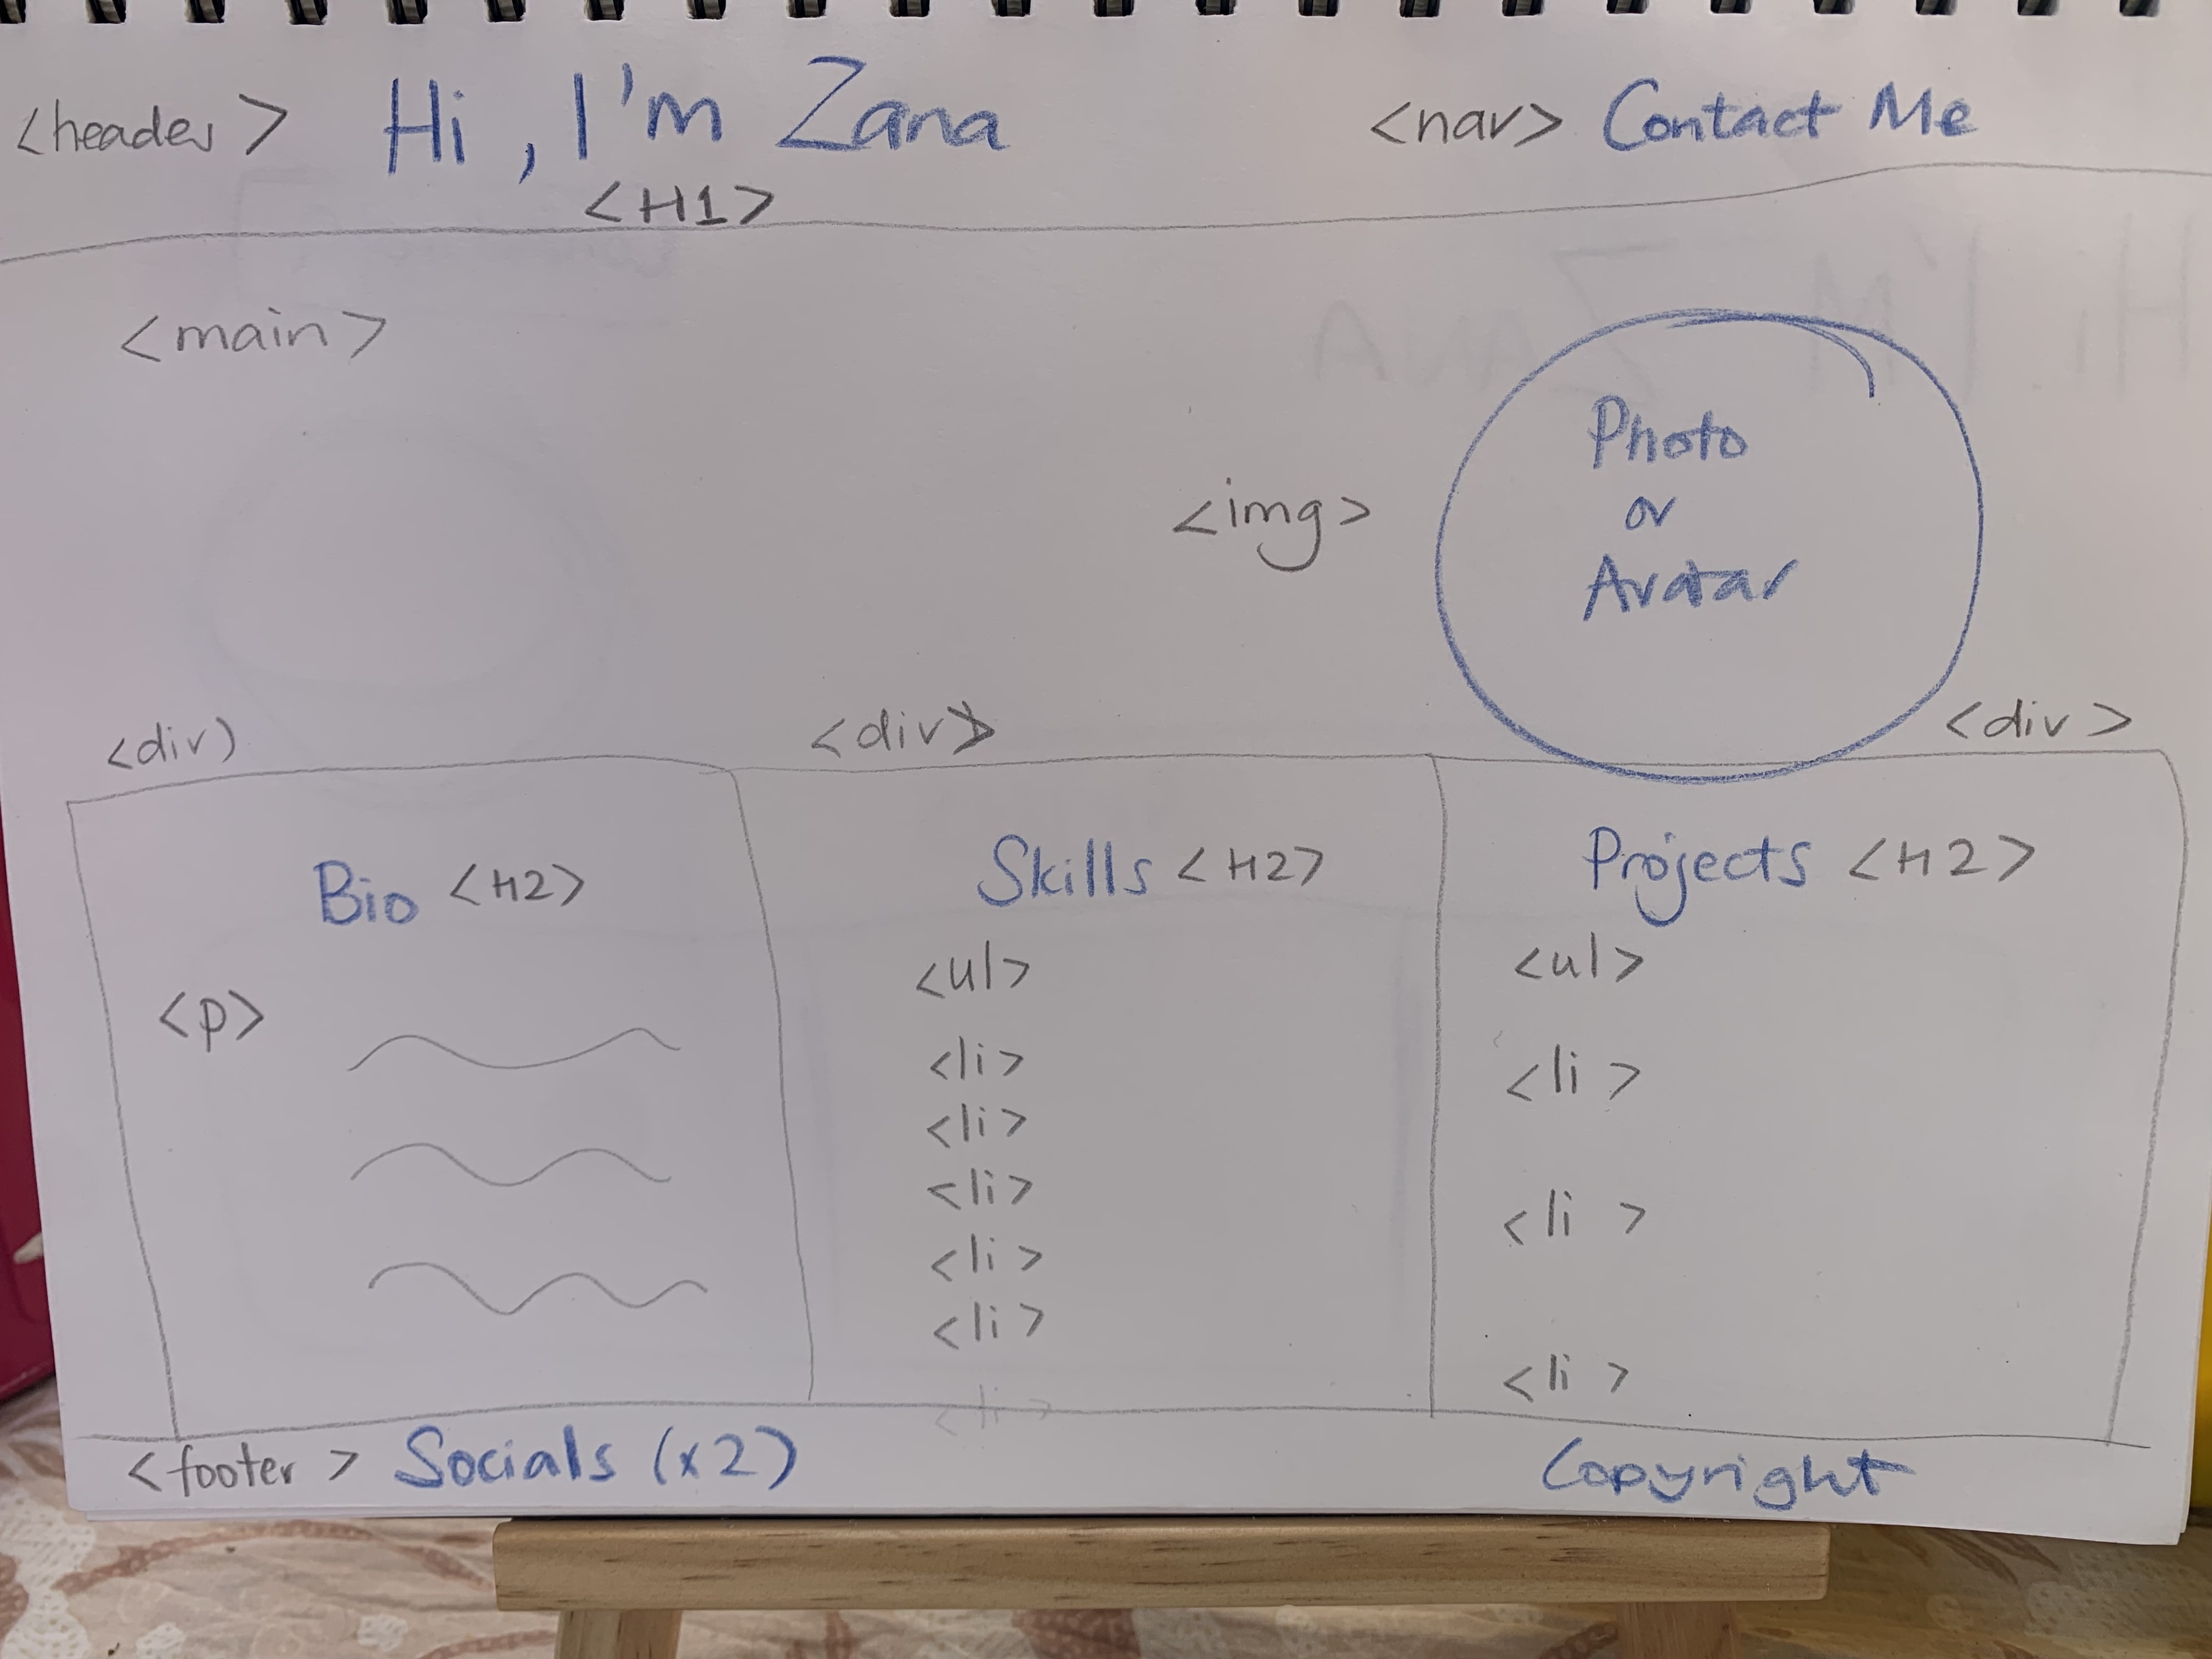 <header> Hi, I'm Zana <nav> Contact Me
<H1>
<main>
Photo
or
<img>
Avatar
<div)
<div>
<div>
Bio <H2>
<p>
Skills <H2>
<ul>
<li>
<li>
<li>
<li>
<li>
<li>
Projects <H2>
<ul>
<li>
<li>
<li>
<footer> Socials (x2) Copyright